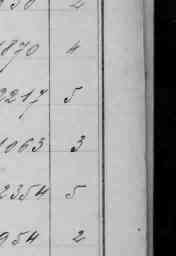 870 4
2217 5
1063 3
2354 5
954 2